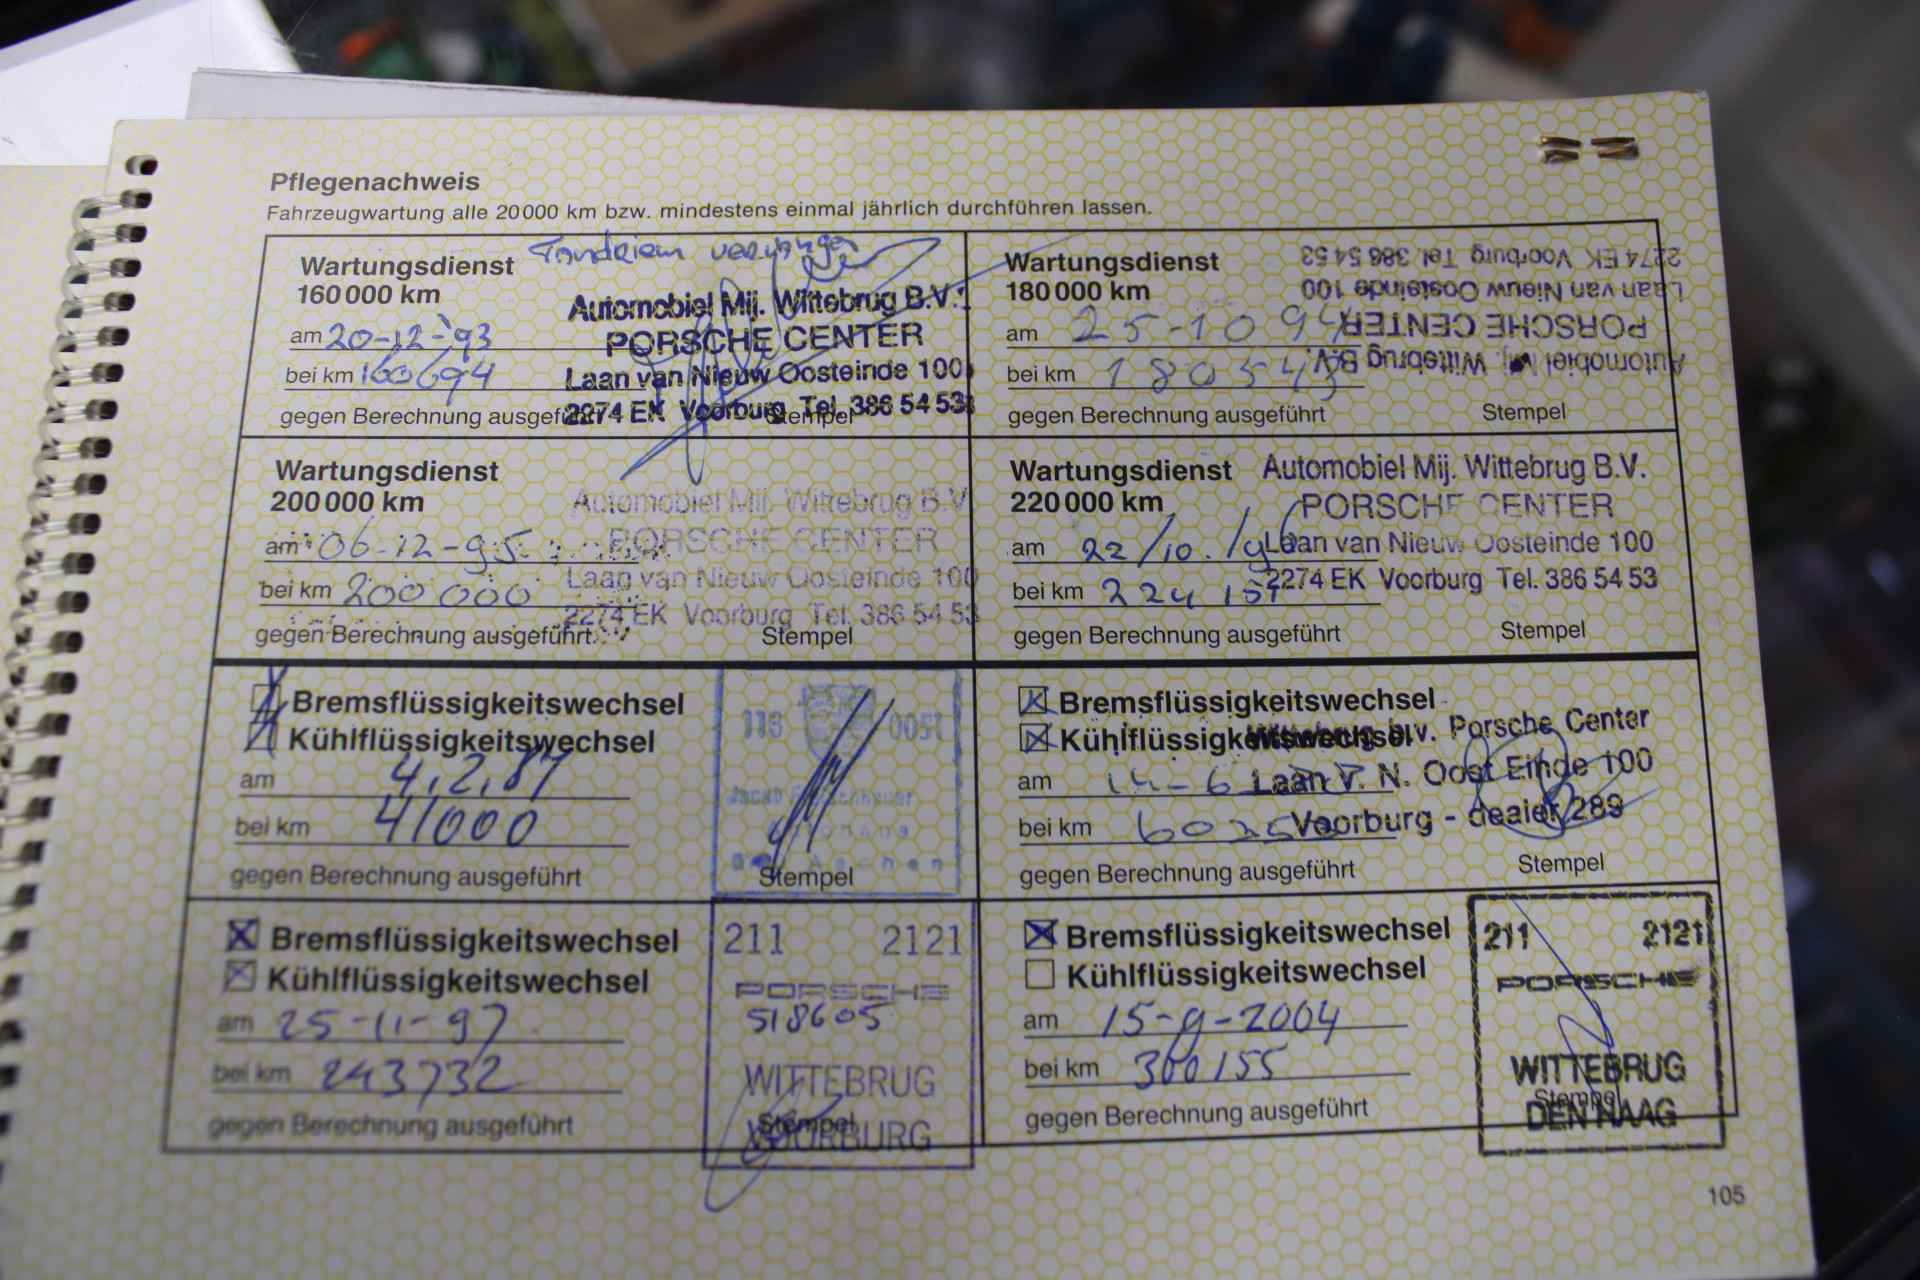 Pflegenachweis
Fahrzeugwartung alle 20 000 km bzw. mindestens einmal jährlich durchführen lassen.
Tandriem
Wartungsdienst
160 000 km
am 20-12-'93
bei km 160694
gegen Berechnung ausgeführt
Automobiel Mij. Wittebrug B.V.
PORSCHE CENTER
Laan van Nieuw Oosteinde 100
2274 EK Voorburg Tel. 386 54 53
Stempel
Wartungsdienst
180 000 km
am 25-10 94
bei km 180543
gegen Berechnung ausgeführt
Automobiel Mij. Wittebrug B.V.
PORSCHE CENTER
Laan van Nieuw Oosteinde 100
2274 EK Voorburg Tel. 386 54 53
Stempel
Wartungsdienst
200 000 km
am 06-12-95
bei km 200 000
gegen Berechnung ausgeführt
Automobiel Mij. Wittebrug B.V.
PORSCHE CENTER
Laan van Nieuw Oosteinde 100
2274 EK Voorburg Tel. 386 54 53
Stempel
Wartungsdienst
220 000 km
am 22/10./96
bei km 224 157
gegen Berechnung ausgeführt
Automobiel Mij. Wittebrug B.V.
PORSCHE CENTER
Laan van Nieuw Oosteinde 100
2274 EK Voorburg Tel. 386 54 53
Stempel
Bremsflüssigkeitswechsel
Kühlflüssigkeitswechsel
am 4.2.87
bei km 41000
gegen Berechnung ausgeführt
118 0051
Jacob
Aachen
Stempel
Bremsflüssigkeitswechsel
Kühlflüssigkeitswechsel
am 14-6
bei km
gegen Berechnung ausgeführt
Wittebrug b.v. Porsche Center
Laan v. N. Oost Einde 100
Voorburg - dealer 289
Stempel
Bremsflüssigkeitswechsel
Kühlflüssigkeitswechsel
am 25-11-97
bei km 243732
gegen Berechnung ausgeführt
211 2121
PORSCHE
518605
WITTEBRUG
Stempel
VOORBURG
Bremsflüssigkeitswechsel
Kühlflüssigkeitswechsel
am 15-9-2004
bei km 300155
gegen Berechnung ausgeführt
211 2121
PORSCHE
WITTEBRUG
Stempel
DEN HAAG
105